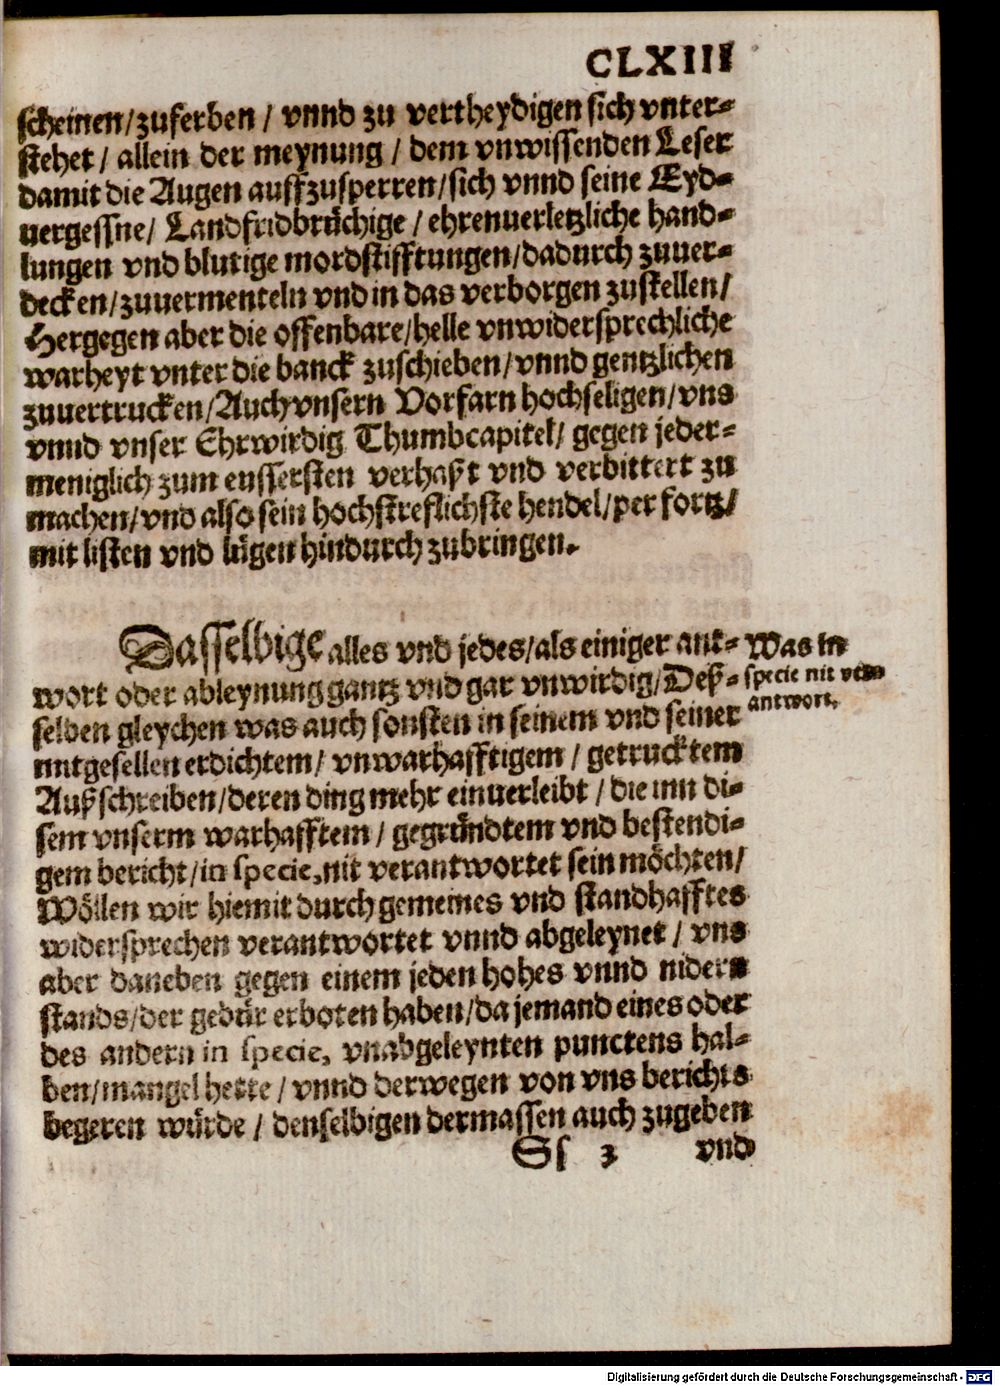 CLXIII
scheinen/zuferben / vnnd zu vertheydigen sich vnter-
stehet / allein der meynung / dem vnwissenden Leser
damit die Augen auffzusperren/sich vnnd seine Eyd-
uergessne/ Landfridbrüchige / ehrenuerletzliche hand-
lungen vnd blutige mordstifftungen/dadurch zuuer-
decken/zuuermenteln vnd in das verborgen zustellen/
Hergegen aber die offenbare/helle vnwidersprechliche
warheyt vnter die banck zuschieben/vnnd gentzlichen
zuuertrucken/Auch vnsern Vorfarn hochseligen/vns
vnnd vnser Ehrwirdig Thumbcapitel/ gegen jeder-
meniglich zum eussersten verhaßt vnd verbittert zu
machen/vnd also sein hochstreflichste hendel/per fortz/
mit listen vnd lügen hindurch zubringen.
Dasselbige alles vnd jedes/als einiger ant-
wort oder ableynung gantz vnd gar vnwirdig/Deß-
selben gleychen was auch sonsten in seinem vnd seiner
mitgesellen erdichtem/ vnwarhafftigem / getrucktem
Außschreiben/deren ding mehr einuerleibt / die inn di-
sem vnserm warhafftem / gegründtem vnd bestendi-
gem bericht/in specie, nit verantwortet sein möchten/
Wöllen wir hiemit durch gemeines vnd standhafftes
widersprechen verantwortet vnnd abgeleynet / vns
aber daneben gegen einem jeden hohes vnnd nidern
stands/der gebür erboten haben/da jemand eines oder
des andern in specie, vnabgeleynten punctens hal-
ben/mangel hette / vnnd derwegen von vns berichts
begeren würde / denselbigen dermassen auch zugeben
Ss 3 vnd
Was in
specie nit ver-
antwort.
Digitalisierung gefördert durch die Deutsche Forschungsgemeinschaft - DFG